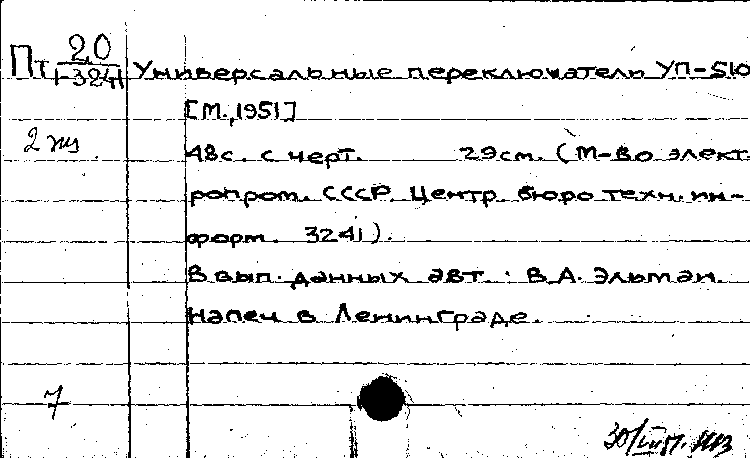 Пт 20
1-3241
Универсальные переключатели УП-510
[М., 1951]
2 экз.
48с. с черт. 29см. (М-во элект
ропром. СССР. Центр. бюро техн. ин-
форм. 3241).
В вып. данных авт.: В.А. Эльман.
Напеч в Ленинграде.
7
30/VII 51.